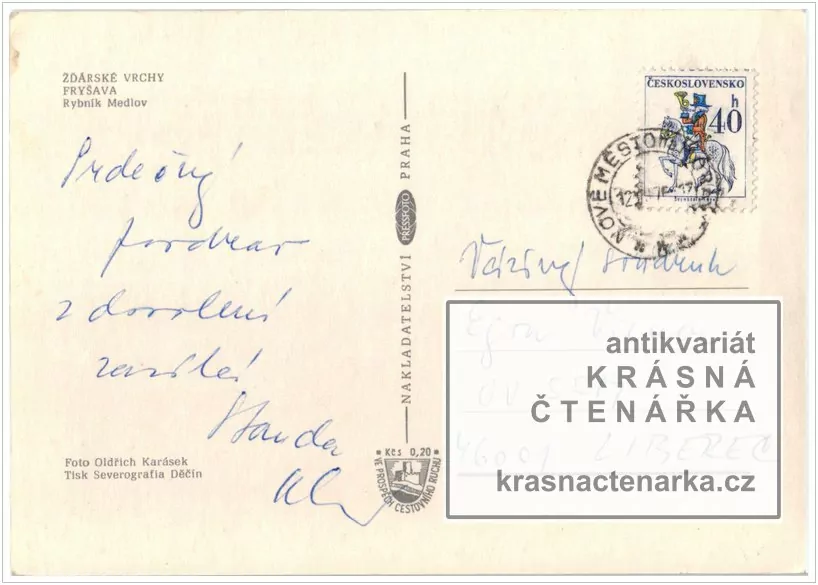 ŽĎÁRSKÉ VRCHY
FRYŠAVA
Rybník Medlov
Srdečný
pozdrav
z dovolené
zasílá
Standa
Foto Oldřich Karásek
Tisk Severografia Děčín
NAKLADATELSTVÍ PRESSFOTO PRAHA
Kčs 0,20
VE PROSPĚCH CESTOVNÍHO RUCHU
ČESKOSLOVENSKO
40 h
NOVÉ MĚSTO NA MORAVĚ
Vážený soudruh
46001 LIBEREC
antikvariát
KRÁSNÁ
ČTENÁŘKA
krasnactenarka.cz